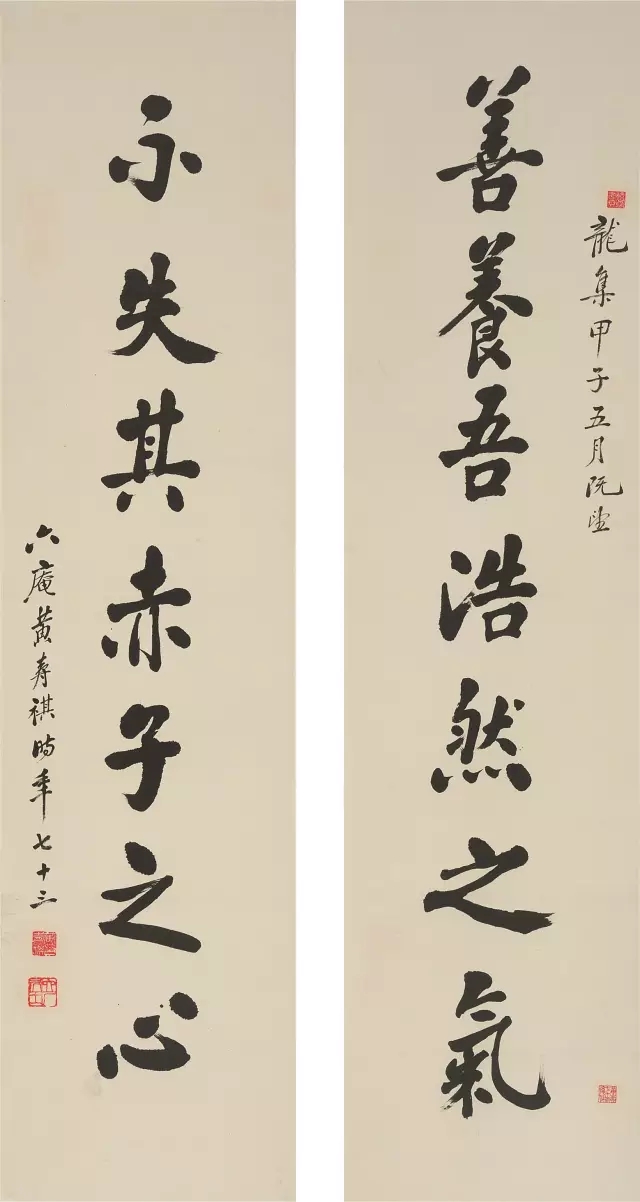 龍集甲子五月既望
善養吾浩然之氣
不失其赤子之心
六庵黄寿祺時年七十三